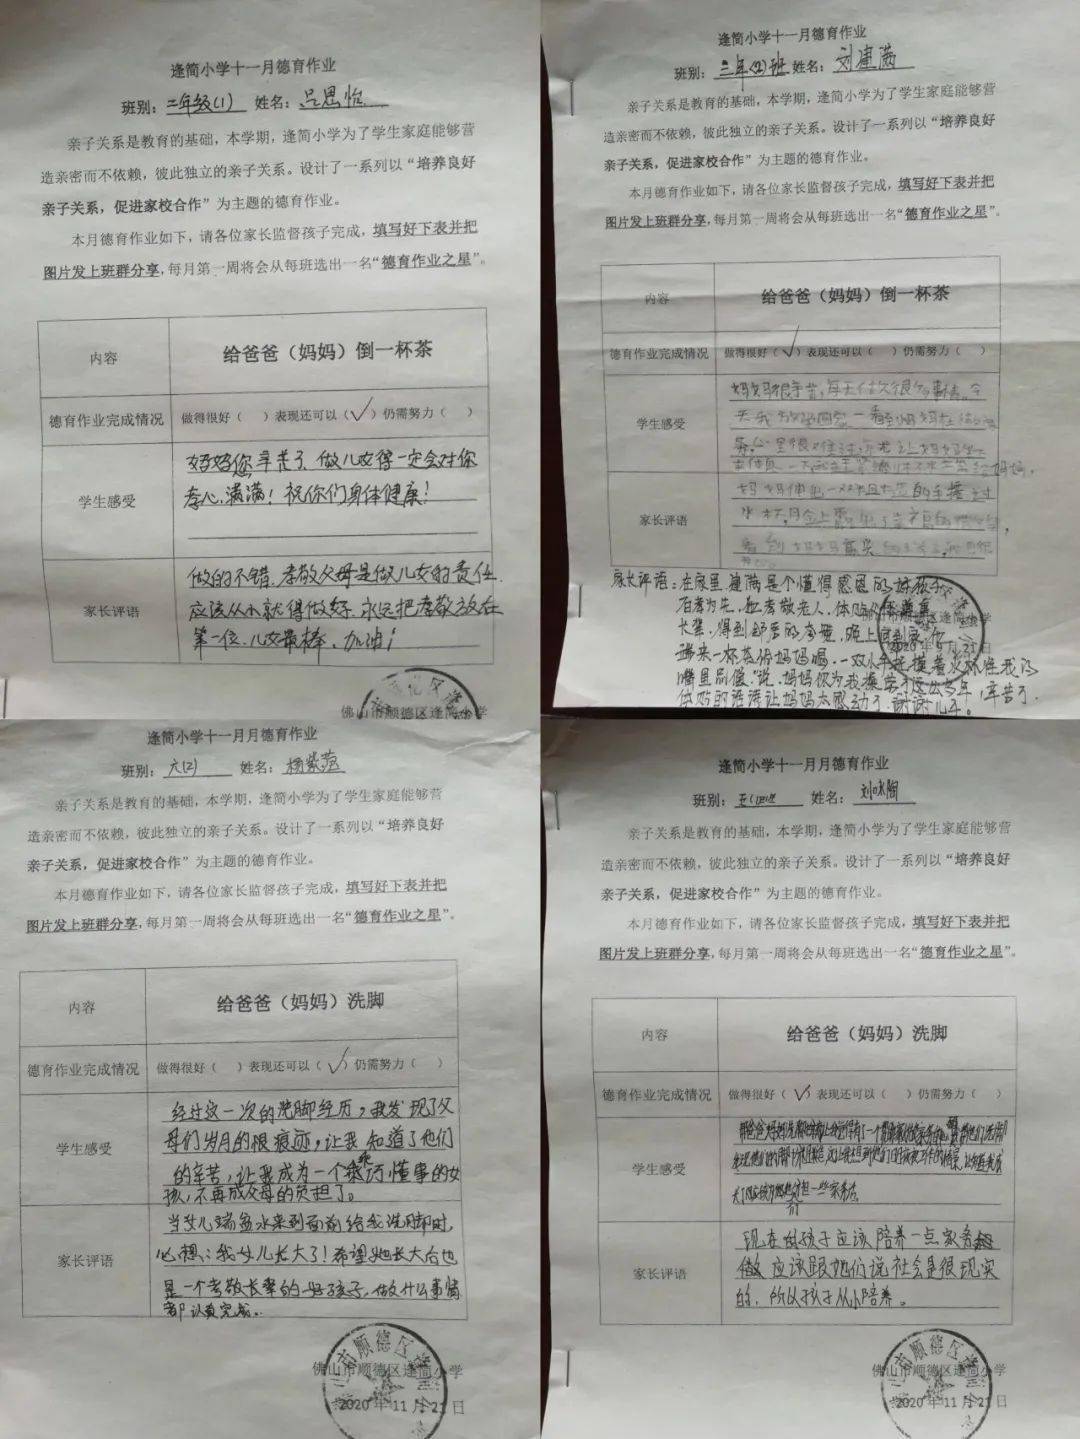 逢简小学十一月德育作业
班别：二年级(1) 姓名：吕思怡
亲子关系是教育的基础，本学期，逢简小学为了学生家庭能够营
造亲密而不依赖，彼此独立的亲子关系。设计了一系列以“培养良好
亲子关系，促进家校合作”为主题的德育作业。
本月德育作业如下，请各位家长监督孩子完成，填写好下表并把
图片发上班群分享，每月第一周将会从每班选出一名“德育作业之星”。
内容 给爸爸（妈妈）倒一杯茶
德育作业完成情况 做得很好（ ）表现还可以（√）仍需努力（ ）
学生感受
妈妈您辛苦了、做儿女得一定会对你
孝心满满！祝你们身体健康！
家长评语
做的不错、孝敬父母是做儿女的责任.
应该从小就得做好、永远把孝敬放在
第一位、儿女最棒、加油！
佛山市顺德区逢简小学
逢简小学十一月德育作业
班别：三年(2)班 姓名：刘建满
亲子关系是教育的基础，本学期，逢简小学为了学生家庭能够营
造亲密而不依赖，彼此独立的亲子关系。设计了一系列以“培养良好
亲子关系，促进家校合作”为主题的德育作业。
本月德育作业如下，请各位家长监督孩子完成，填写好下表并把
图片发上班群分享，每月第一周将会从每班选出一名“德育作业之星”。
内容 给爸爸（妈妈）倒一杯茶
德育作业完成情况 做得很好（√）表现还可以（ ）仍需努力（ ）
学生感受
妈妈很辛苦，每天做次很多事情。今
天我放学回家一看到妈妈在做
家长评语
家长评语：在家里建满是个懂得感恩的好孩子
百孝为先，
长辈，得到
端来一杯茶给妈妈喝、一双小手
说、妈妈你为我操劳了这么多年，辛苦了.
体贴的话语让妈妈太感动了.谢谢儿子。
佛山市顺德区逢简小学
逢简小学十一月月德育作业
班别：六(2) 姓名：杨紫范
亲子关系是教育的基础，本学期，逢简小学为了学生家庭能够营
造亲密而不依赖，彼此独立的亲子关系。设计了一系列以“培养良好
亲子关系，促进家校合作”为主题的德育作业。
本月德育作业如下，请各位家长监督孩子完成，填写好下表并把
图片发上班群分享，每月第一周将会从每班选出一名“德育作业之星”。
内容 给爸爸（妈妈）洗脚
德育作业完成情况 做得很好（ ）表现还可以（√）仍需努力（ ）
学生感受
经过这一次的洗脚经历，我发现了父
母们岁月的很痕迹，让我知道了他们
的辛苦，让我成为一个懂事的女
孩，不再成父母的负担了。
家长评语
当女儿端盆水来到面前给我洗脚时，
心想：我女儿长大了！希望她长大后也
是一个孝敬长辈的好孩子，做什么事情
都认真完成。
佛山市顺德区逢简小学
2020年11月21日
逢简小学十一月月德育作业
班别： 姓名：刘咏陶
亲子关系是教育的基础，本学期，逢简小学为了学生家庭能够营
造亲密而不依赖，彼此独立的亲子关系。设计了一系列以“培养良好
亲子关系，促进家校合作”为主题的德育作业。
本月德育作业如下，请各位家长监督孩子完成，填写好下表并把
图片发上班群分享，每月第一周将会从每班选出一名“德育作业之星”。
内容 给爸爸（妈妈）洗脚
德育作业完成情况 做得很好（√）表现还可以（ ）仍需努力（ ）
学生感受
家长评语
现在的孩子应该陪养一点家务
做应该跟她们说社会是很现实
的、所以孩子从小陪养。
佛山市顺德区逢简小学
2020年11月21日